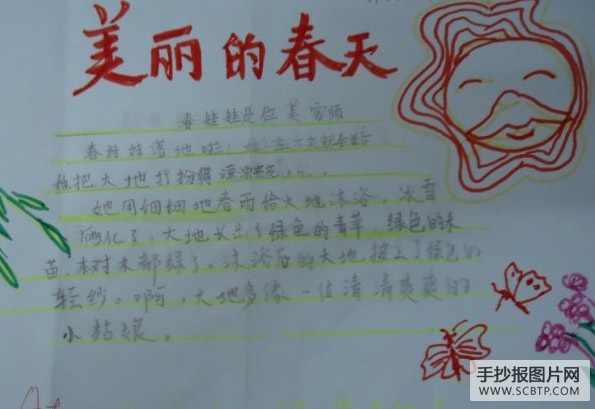 美丽的春天
春娃娃是位美容师
春娃娃落地啦！
把大地打扮得漂漂亮亮。
她用细细地春雨给大地沐浴。冰雪
融化了，大地长出了绿色的青草 绿色的禾
苗。树木都绿了。沐浴后的大地，披上了绿色的
轻纱。啊，大地多像一位清清爽爽的
小姑娘。
手抄报图片网
WWW.SCBTP.COM